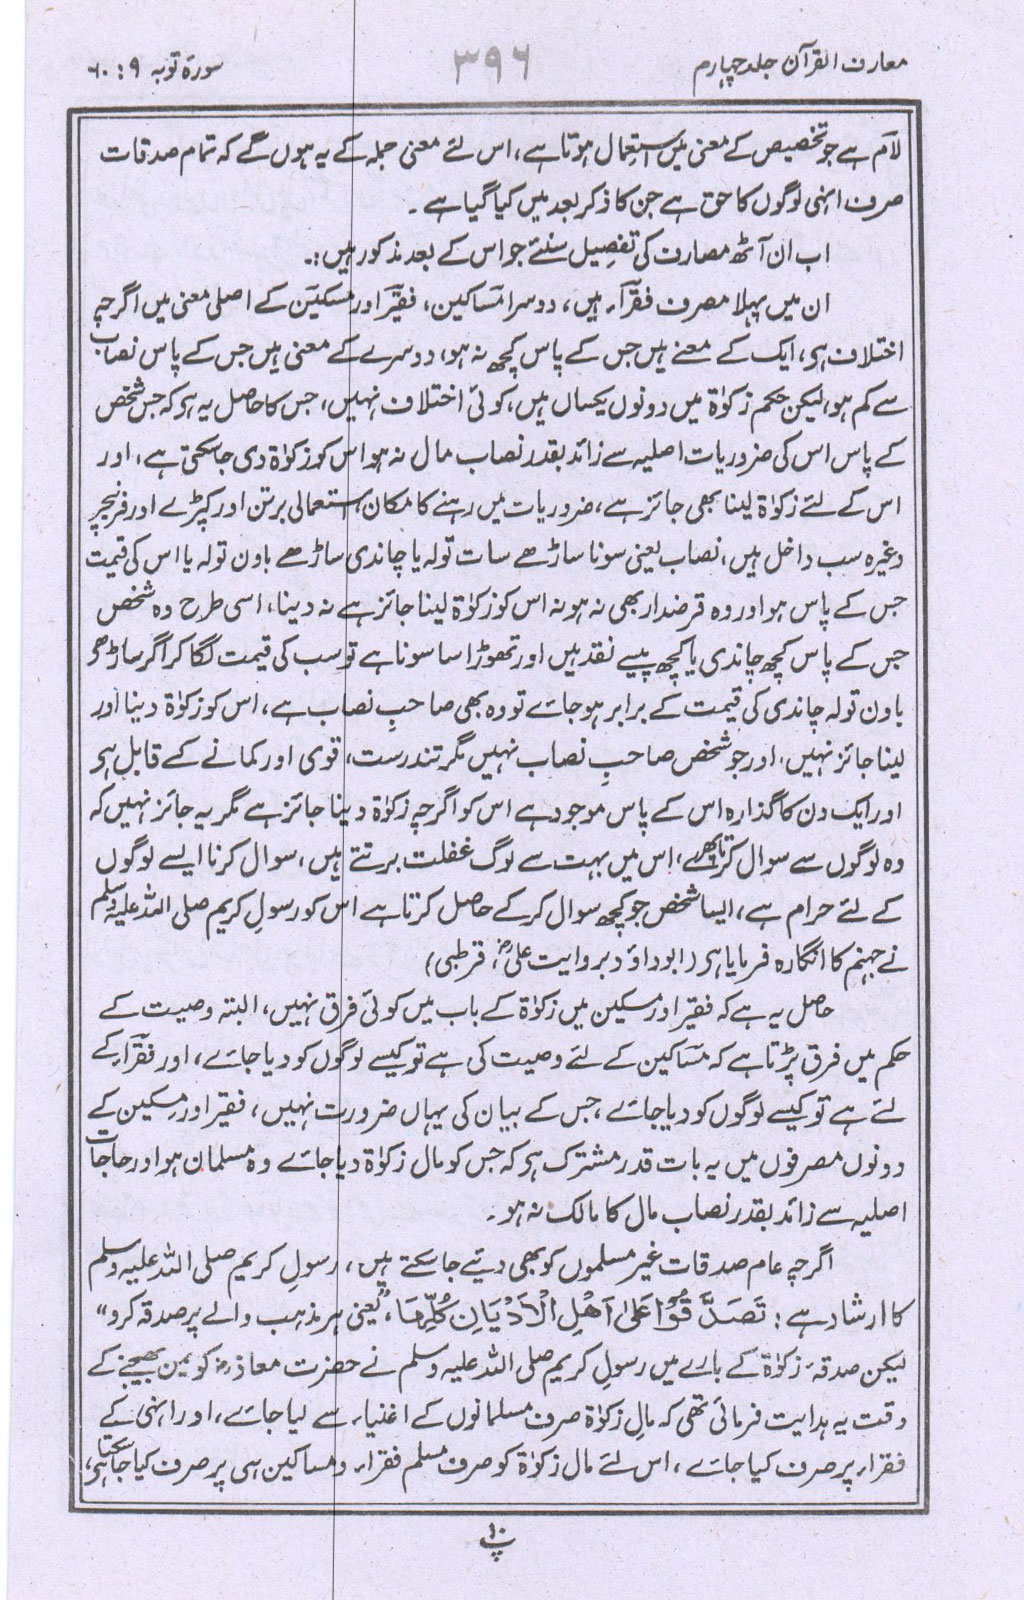 معارف القرآن جلد چہارم
۳۹۶
سورۃ توبہ ۹ : ۶۰
لام ہے جو تخصیص کے معنی میں استعمال ہوتا ہے، اس لئے معنی جملہ کے یہ ہوں گے کہ تمام صدقات
صرف انہی لوگوں کا حق ہے جن کا ذکر بعد میں کیا گیا ہے ۔
اب ان آٹھ مصارف کی تفصیل سنئے جو اس کے بعد مذکور ہیں :۔
ان میں پہلا مصرف فقرآء ہیں، دوسرا مساکین، فقیر اور مسکین کے اصلی معنی میں اگرچہ
اختلاف ہی، ایک کے معنے ہیں جس کے پاس کچھ نہ ہو، دوسرے کے معنی ہیں جس کے پاس نصاب
سے کم ہو، لیکن حکم زکوٰۃ میں دونوں یکساں ہیں، کوئی اختلاف نہیں، جس کا حاصل یہ ہی کہ جس شخص
کے پاس اس کی ضروریات اصلیہ سے زائد بقدر نصاب مال نہ ہو اس کو زکوٰۃ دی جا سکتی ہے، اور
اس کے لئے زکوٰۃ لینا بھی جائز ہے، ضروریات میں رہنے کا مکان، استعمالی برتن اور کپڑے اور فرنیچر
وغیرہ سب داخل ہیں، نصاب یعنی سونا ساڑھے سات تولہ یا چاندی ساڑھے باون تولہ یا اس کی قیمت
جس کے پاس ہو اور وہ قرضدار بھی نہ ہو نہ اس کو زکوٰۃ لینا جائز ہے نہ دینا، اسی طرح وہ شخص
جس کے پاس کچھ چاندی یا کچھ پیسے نقد ہیں اور تھوڑا سا سونا ہے تو سب کی قیمت لگا کر اگر ساڑھے
باون تولہ چاندی کی قیمت کے برابر ہو جائے تو وہ بھی صاحبِ نصاب ہے، اس کو زکوٰۃ دینا اور
لینا جائز نہیں، اور جو شخص صاحبِ نصاب نہیں مگر تندرست، قوی اور کمانے کے قابل ہی
اور ایک دن کا گذارہ اس کے پاس موجود ہے اس کو اگرچہ زکوٰۃ دینا جائز ہے مگر یہ جائز نہیں کہ
وہ لوگوں سے سوال کرتا پھرے، اس میں بہت سے لوگ غفلت برتتے ہیں، سوال کرنا ایسے لوگوں
کے لئے حرام ہے، ایسا شخص جو کچھ سوال کر کے حاصل کرتا ہے اس کو رسولِ کریم صلی اللہ علیہ وسلم
نے جہنم کا انگارہ فرمایا ہی (ابوداؤد بروایت علیؓ، قرطبی)
حاصل یہ ہے کہ فقیر اور مسکین میں زکوٰۃ کے باب میں کوئی فرق نہیں، البتہ وصیت کے
حکم میں فرق پڑتا ہے کہ مساکین کے لئے وصیت کی ہے تو کیسے لوگوں کو دیا جائے، اور فقرآء کے
لئے ہے تو کیسے لوگوں کو دیا جائے، جس کے بیان کی یہاں ضرورت نہیں، فقیر اور مسکین کے
دونوں مصرفوں میں یہ بات قدرِ مشترک ہی کہ جس کو مال زکوٰۃ دیا جائے وہ مسلمان ہو اور حاجات
اصلیہ سے زائد بقدر نصاب مال کا مالک نہ ہو ۔
اگرچہ عام صدقات غیر مسلموں کو بھی دیئے جا سکتے ہیں، رسولِ کریم صلی اللہ علیہ وسلم
کا ارشاد ہے : تَصَدَّقُوْا عَلیٰ اَھْلِ الْاَدْیَانِ کُلِّھَا، ”یعنی ہر مذہب والے پر صدقہ کرو“
لیکن صدقۂ زکوٰۃ کے بارے میں رسولِ کریم صلی اللہ علیہ وسلم نے حضرت معاذؓ کو یمن بھیجنے کے
وقت یہ ہدایت فرمائی تھی کہ مالِ زکوٰۃ صرف مسلمانوں کے اغنیاء سے لیا جائے، اور انہی کے
فقراء پر صرف کیا جائے، اس لئے مال زکوٰۃ کو صرف مسلم فقراء و مساکین ہی پر صرف کیا جا سکتا ہی،
پ ۱۰